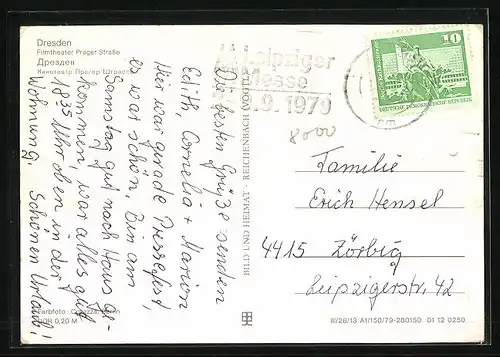 Dresden
Filmtheater Prager Straße
Дрезден
Кинотеатр Прагер Штрассе
Die besten Grüße senden
Edith, Cornelia + Marion
Hier war gerade Pressefest,
es war schön. Bin am
Samstag gut nach Haus ge-
kommen, war alles gut
1835 Uhr oben in der
Wohnung. Schönen Urlaub!
Farbfoto: Berlin
DDR 0,20 M
BILD UND HEIMAT · REICHENBACH (VOGTL)
Leipziger
Messe
9. 1979
10
DEUTSCHE DEMOKRATISCHE REPUBLIK
8000
Familie
Erich Hensel
4415 Zörbig
Leipzigerstr. 42
III/26/13 A1/150/79-280150 01 12 0250